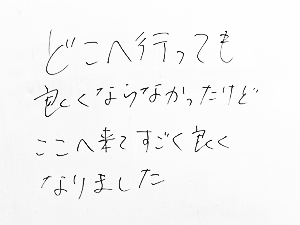 どこへ行っても
良くならなかったけど
ここへ来てすごく良く
なりました